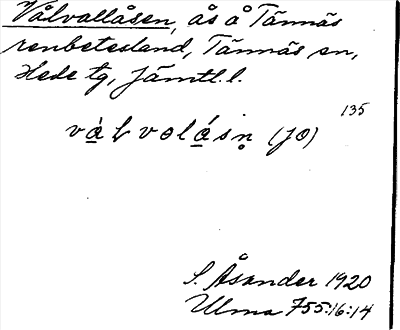 Vålvallåsen, ås å Tännäs
renbetesland, Tännäs sn,
Hede tg, Jämtl. l.
135
vå̀ɫvolǻsn̥ (JO)
S. Åsander 1920
Ulma 755:16:14